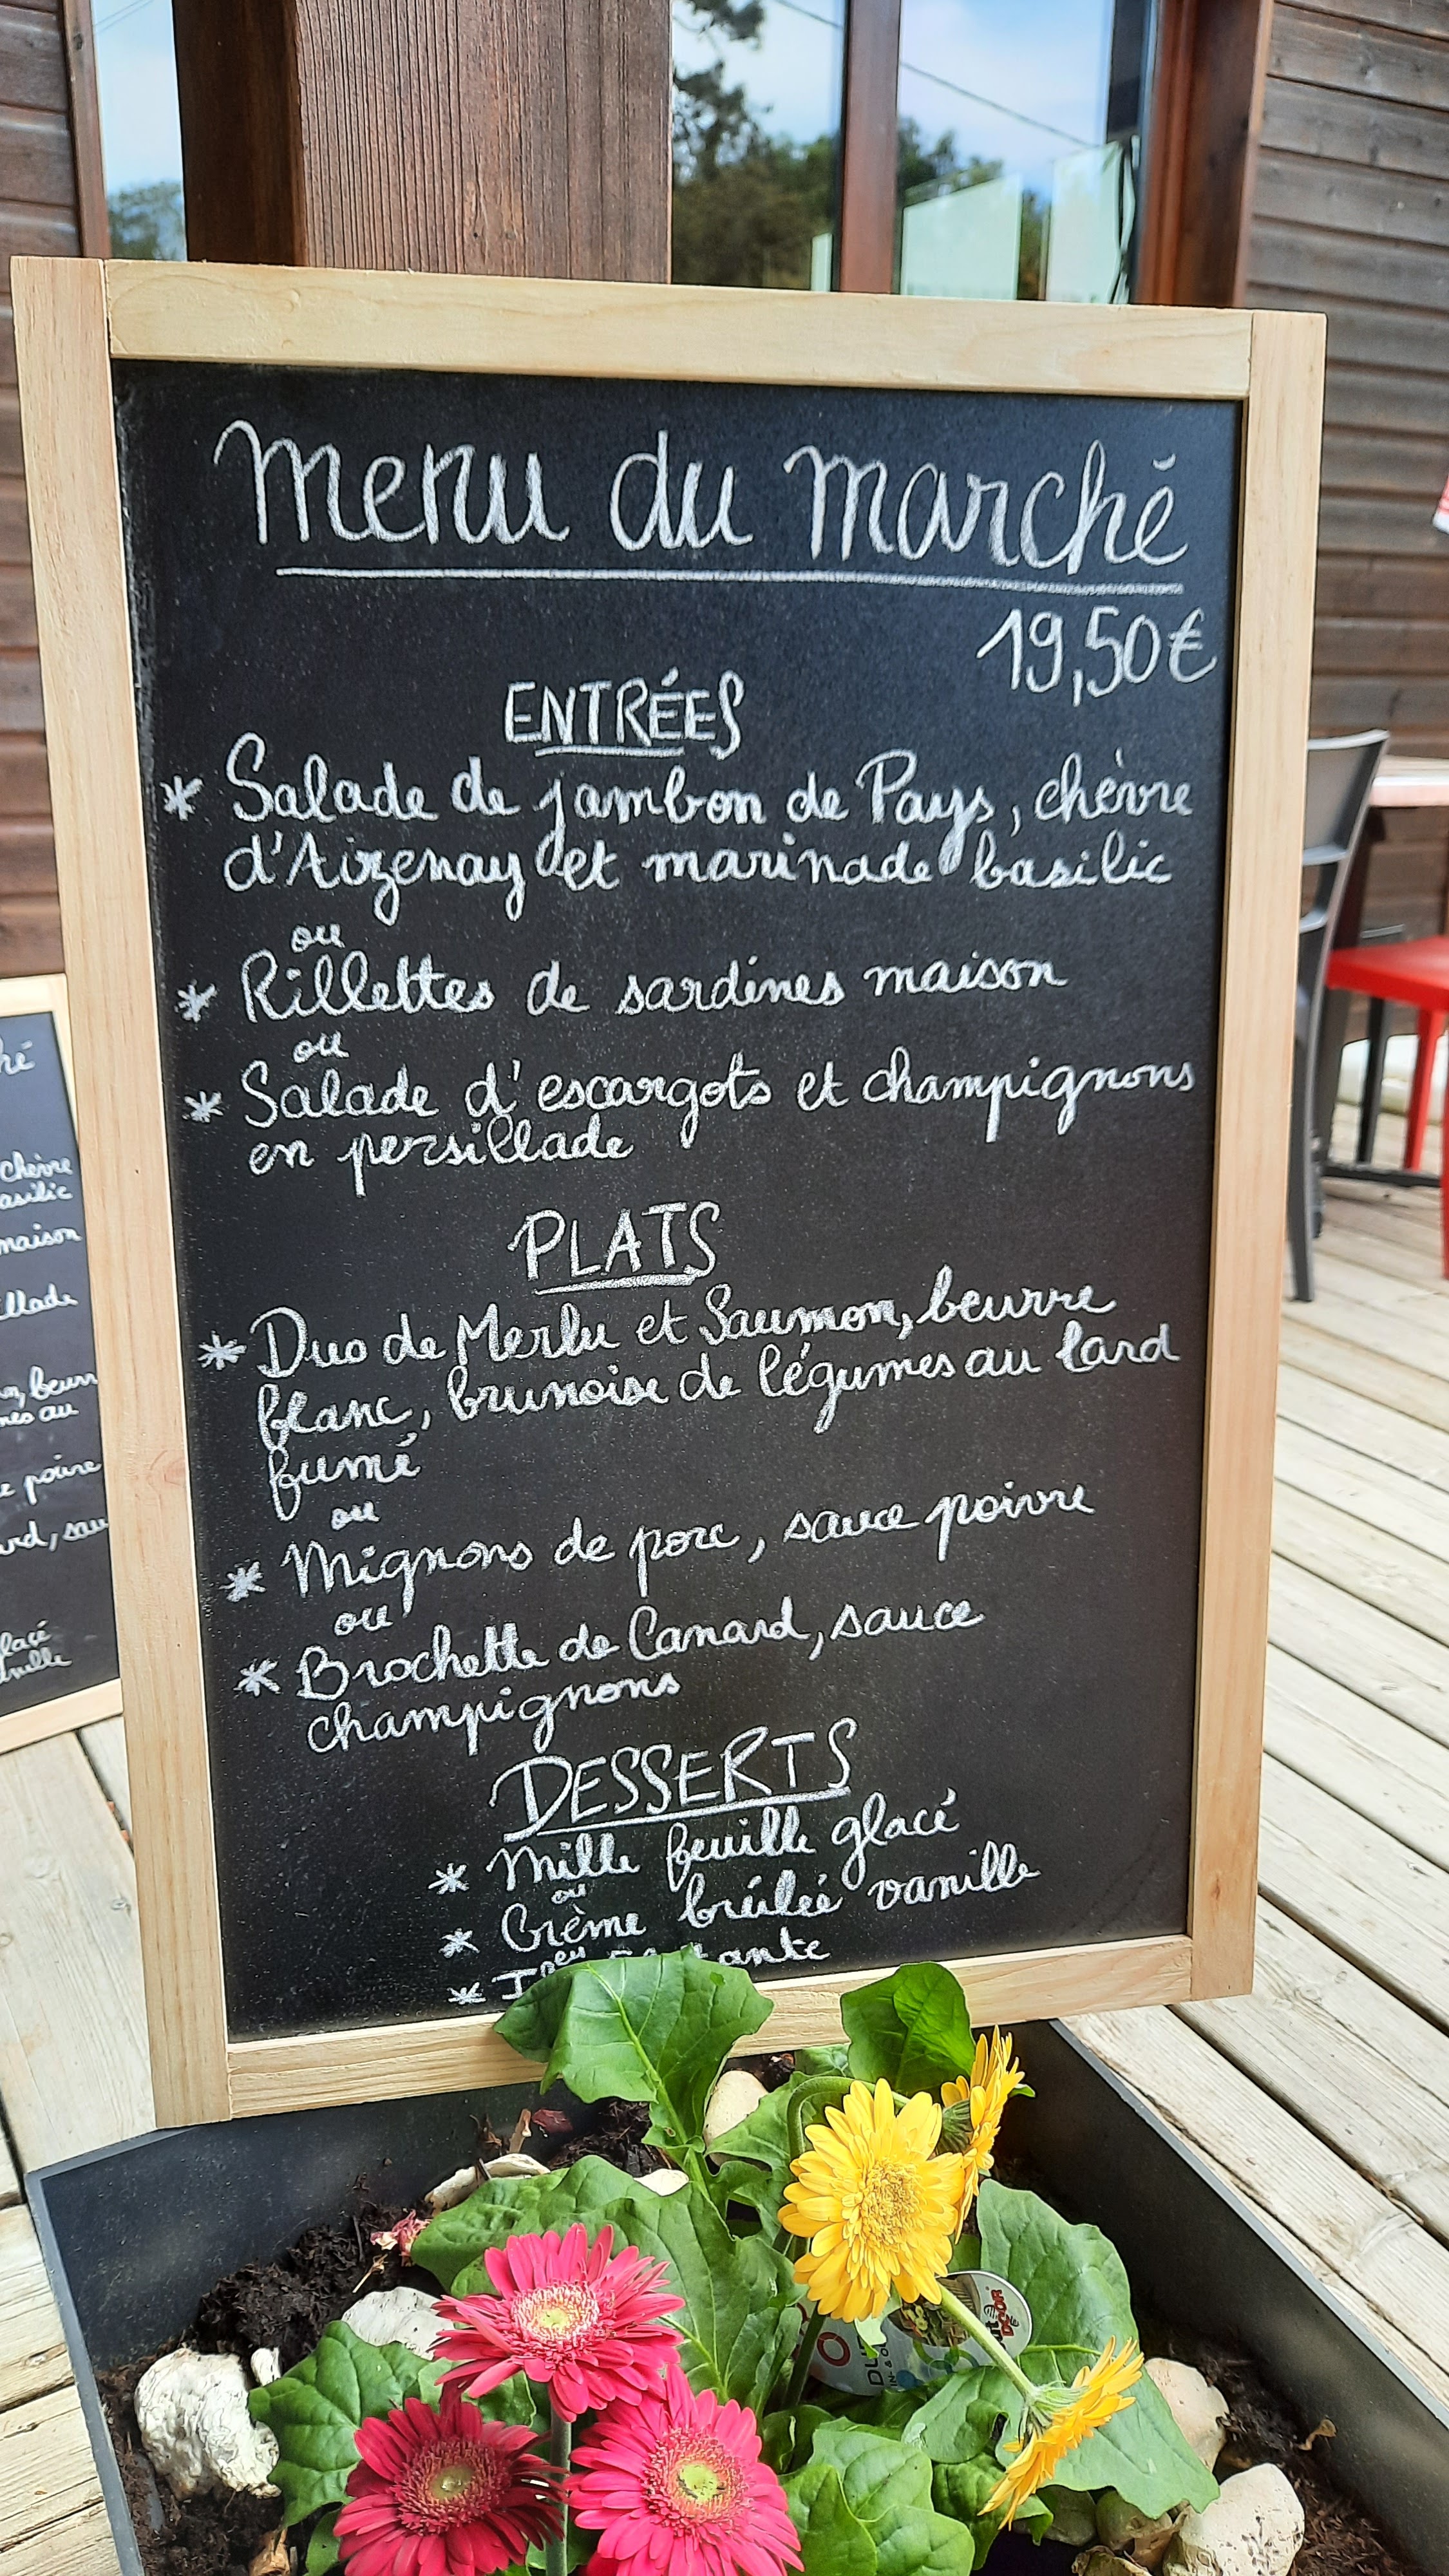 menu du marché
19,50€
ENTRÉES
* Salade de jambon de Pays, chèvre
d'Aizenay et marinade basilic
ou
* Rillettes de sardines maison
ou
* Salade d'escargots et champignons
en persillade
PLATS
* Duo de Merlu et Saumon, beurre
blanc, brunoise de légumes au lard
fumé
ou
* Mignons de porc, sauce poivre
ou
* Brochette de Canard, sauce
champignons
DESSERTS
* Mille feuille glacé
ou
* Crème brûleé vanille
ou
*
hé
chèvre
asilic
maison
illade
beurr
au
poivre
rd, sau
lacé
anille